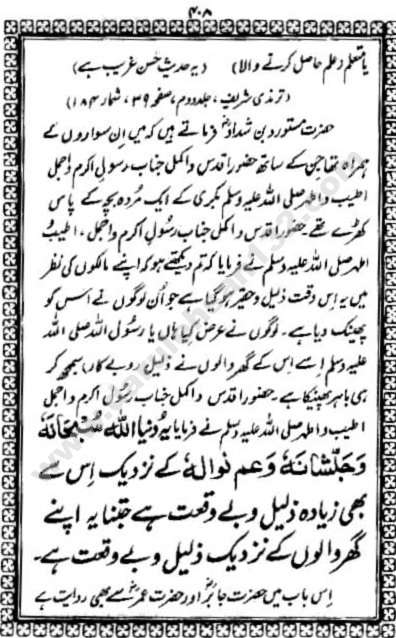 ۴۰۸
یا متعلم (علم حاصل کرنے والا) (یہ حدیث حسن غریب ہے)
(ترمذی شریف، جلد دوم، صفحہ ۳۹، شمار ۱۸۴)
حضرت مستورد بن شداد فرماتے ہیں کہ میں ان سواروں کے
ہمراہ تھا جن کے ساتھ حضور اقدس و اکمل جناب رسول اکرم و اجمل
اطیب و اطہر صلی اللہ علیہ وسلم بکری کے ایک مردہ بچہ کے پاس
کھڑے تھے۔ حضور اقدس و اکمل جناب رسول اکرم و اجمل، اطیب و
اطہر صلی اللہ علیہ وسلم نے فرمایا کہ تم دیکھتے ہو کہ اپنے مالکوں کی نظر
میں یہ اس وقت ذلیل و حقیر ہو گیا ہے جو ان لوگوں نے اس کو
پھینک دیا ہے۔ لوگوں نے عرض کیا ہاں یا رسول اللہ صلی اللہ
علیہ وسلم اسے اس کے گھر والوں نے ذلیل و بے کار سمجھ کر
ہی باہر پھینکا ہے۔ حضور اقدس و اکمل جناب رسول اکرم و اجمل
اطیب و اطہر صلی اللہ علیہ وسلم نے فرمایا یہ دنیا اللہ سُبْحَانَہٗ
وَجَلَّشَانَہٗ وَعَم نوالہٗ کے نزدیک اس سے
بھی زیادہ ذلیل و بے وقعت ہے جتنا یہ اپنے
گھر والوں کے نزدیک ذلیل و بے وقعت ہے۔
اس باب میں حضرت جابرؓ اور حضرت عمرؓ سے بھی روایت ہے